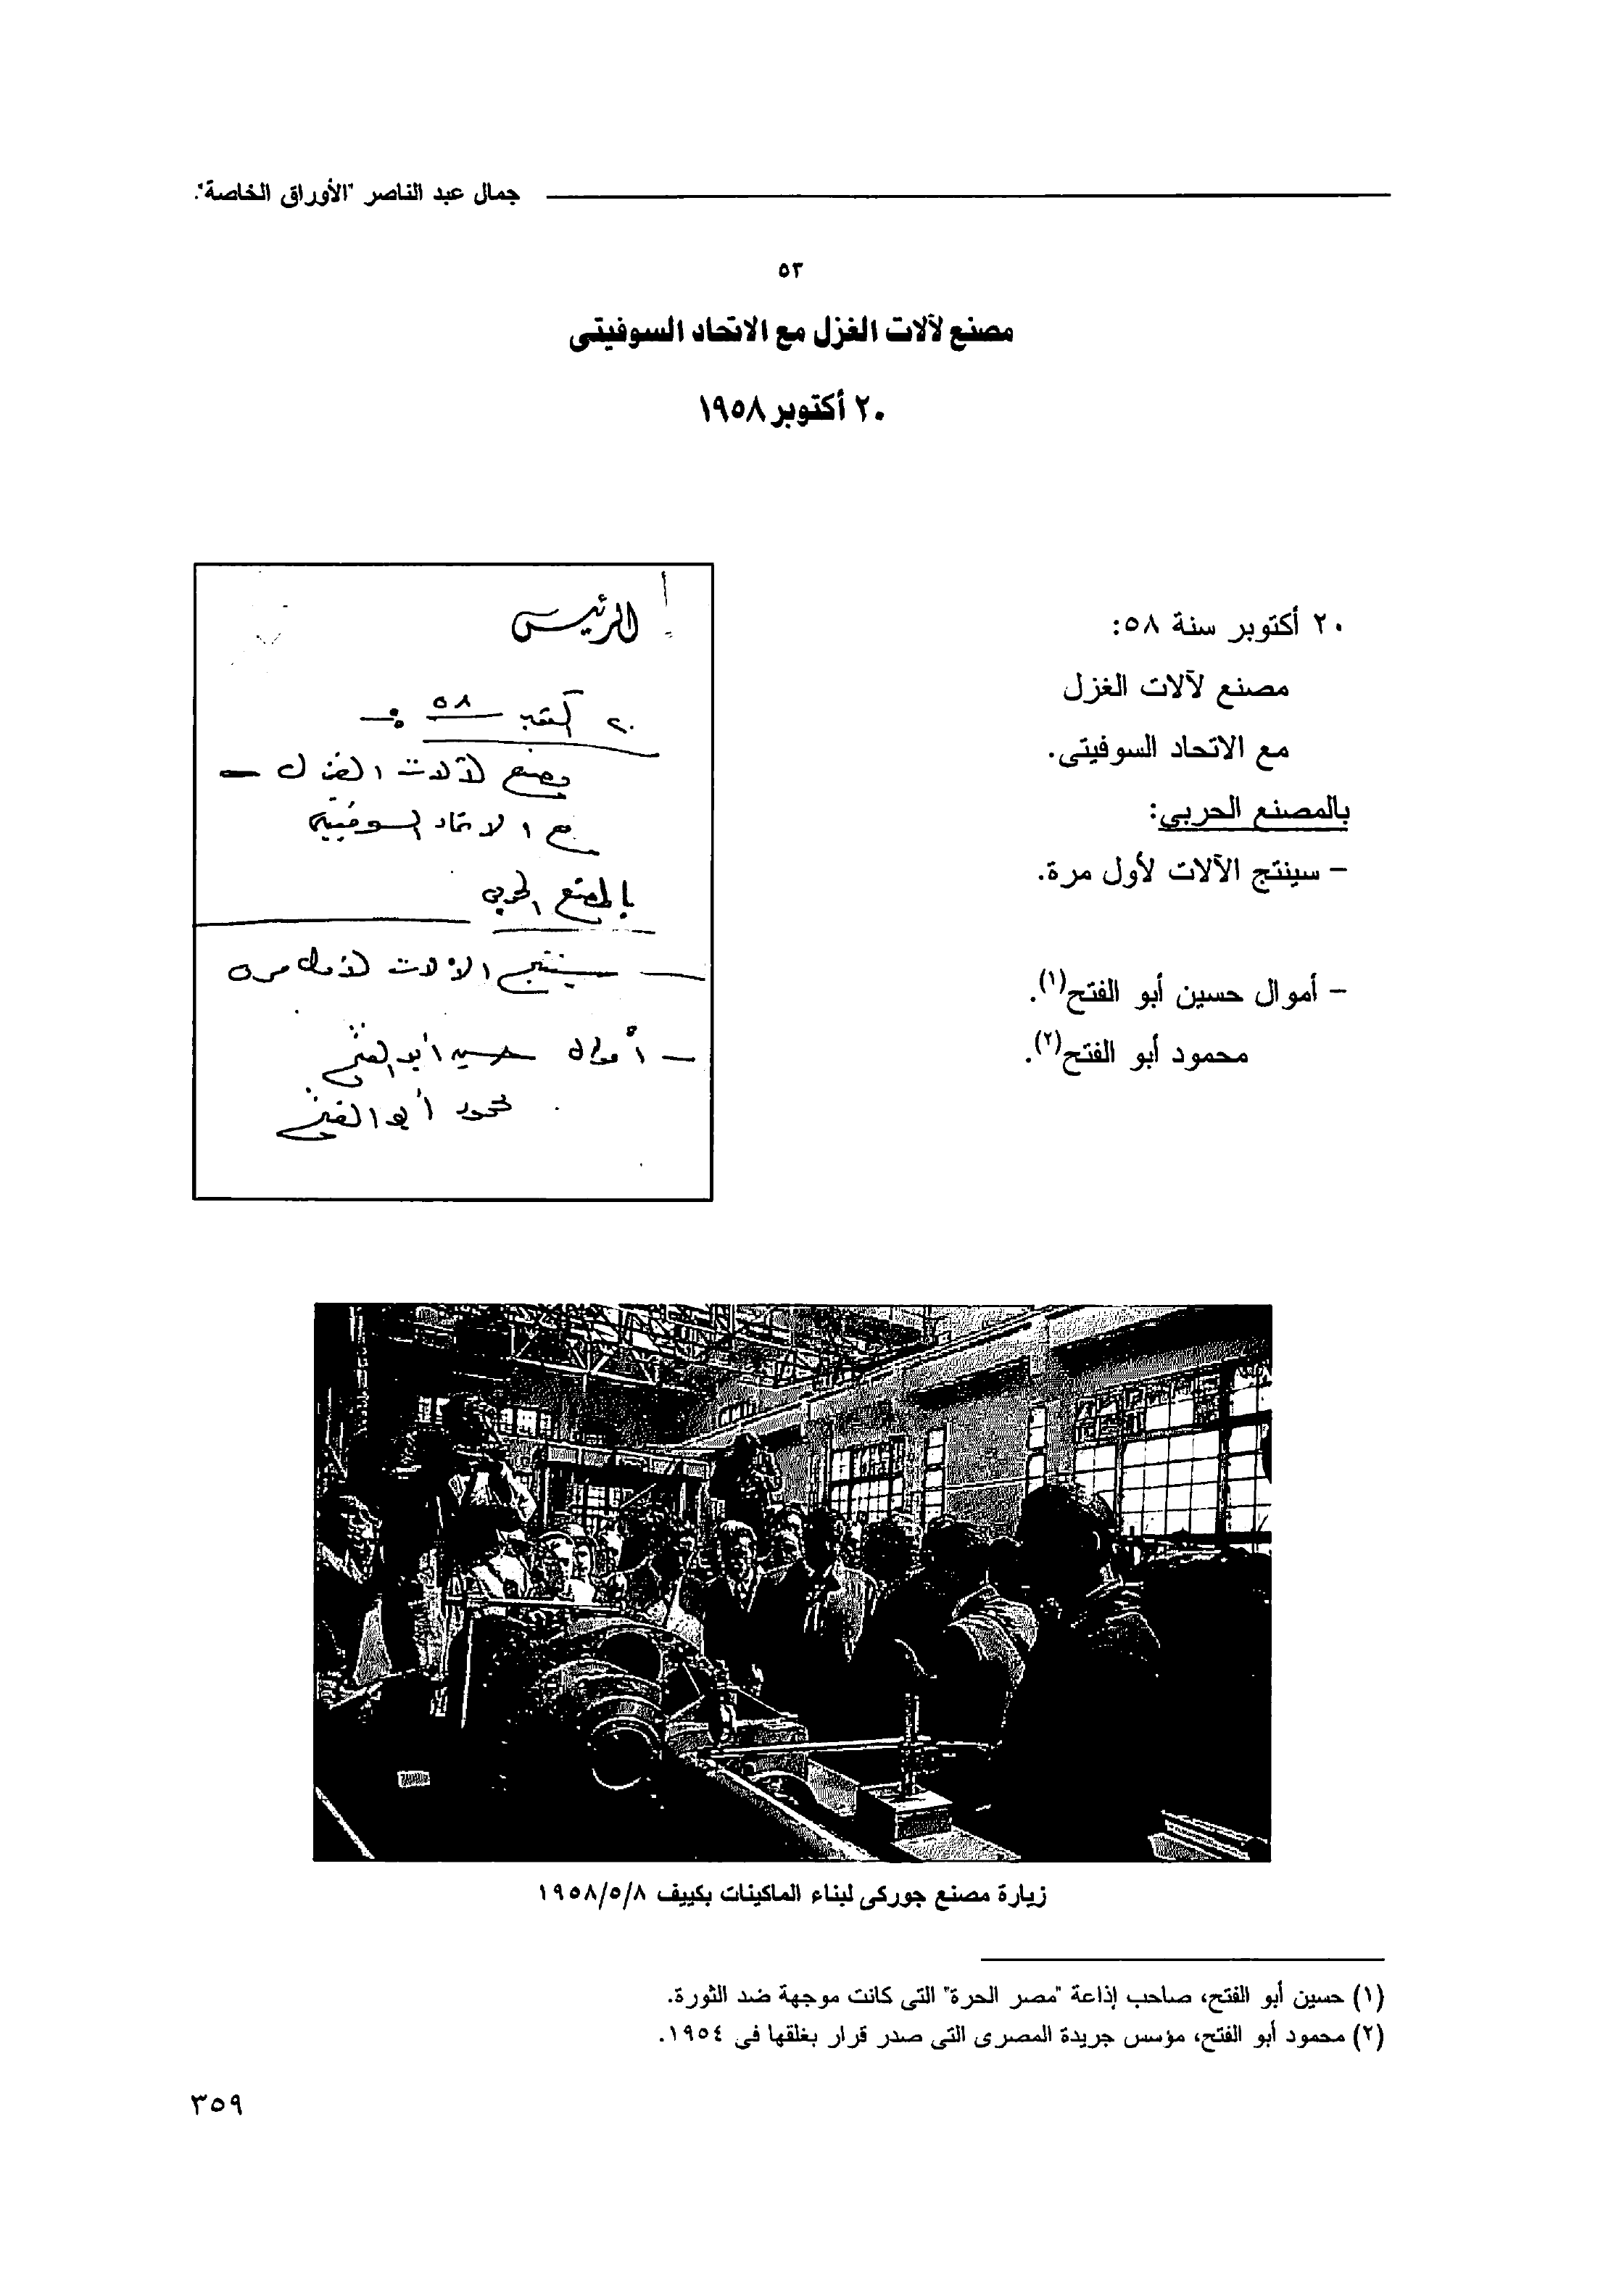 جمال عبد الناصر "الأوراق الخاصة".
٥٣
مصنع لآلات الغزل مع الاتحاد السوفيتى
٢٠ أكتوبر ١٩٥٨
٢٠ أكتوبر سنة ٥٨:
مصنع لآلات الغزل
مع الاتحاد السوفيتى.
بالمصنع الحربي:
- سينتج الآلات لأول مرة.
- أموال حسين أبو الفتح(١).
محمود أبو الفتح(٢).
الرئيس
٢٠ أكتوبر ٥٨ :-
مصنع لآلات الغزل -
مع الاتحاد السوفيتى
بالمصنع الحربى
- سينتج الآلات لأول مرة
- أموال حسين أبو الفتح
محمود أبو الفتح
زيارة مصنع جوركى لبناء الماكينات بكييف ١٩٥٨/٥/٨
(١) حسين أبو الفتح، صاحب إذاعة "مصر الحرة" التى كانت موجهة ضد الثورة.
(٢) محمود أبو الفتح، مؤسس جريدة المصرى التى صدر قرار بغلقها فى ١٩٥٤.
٣٥٩